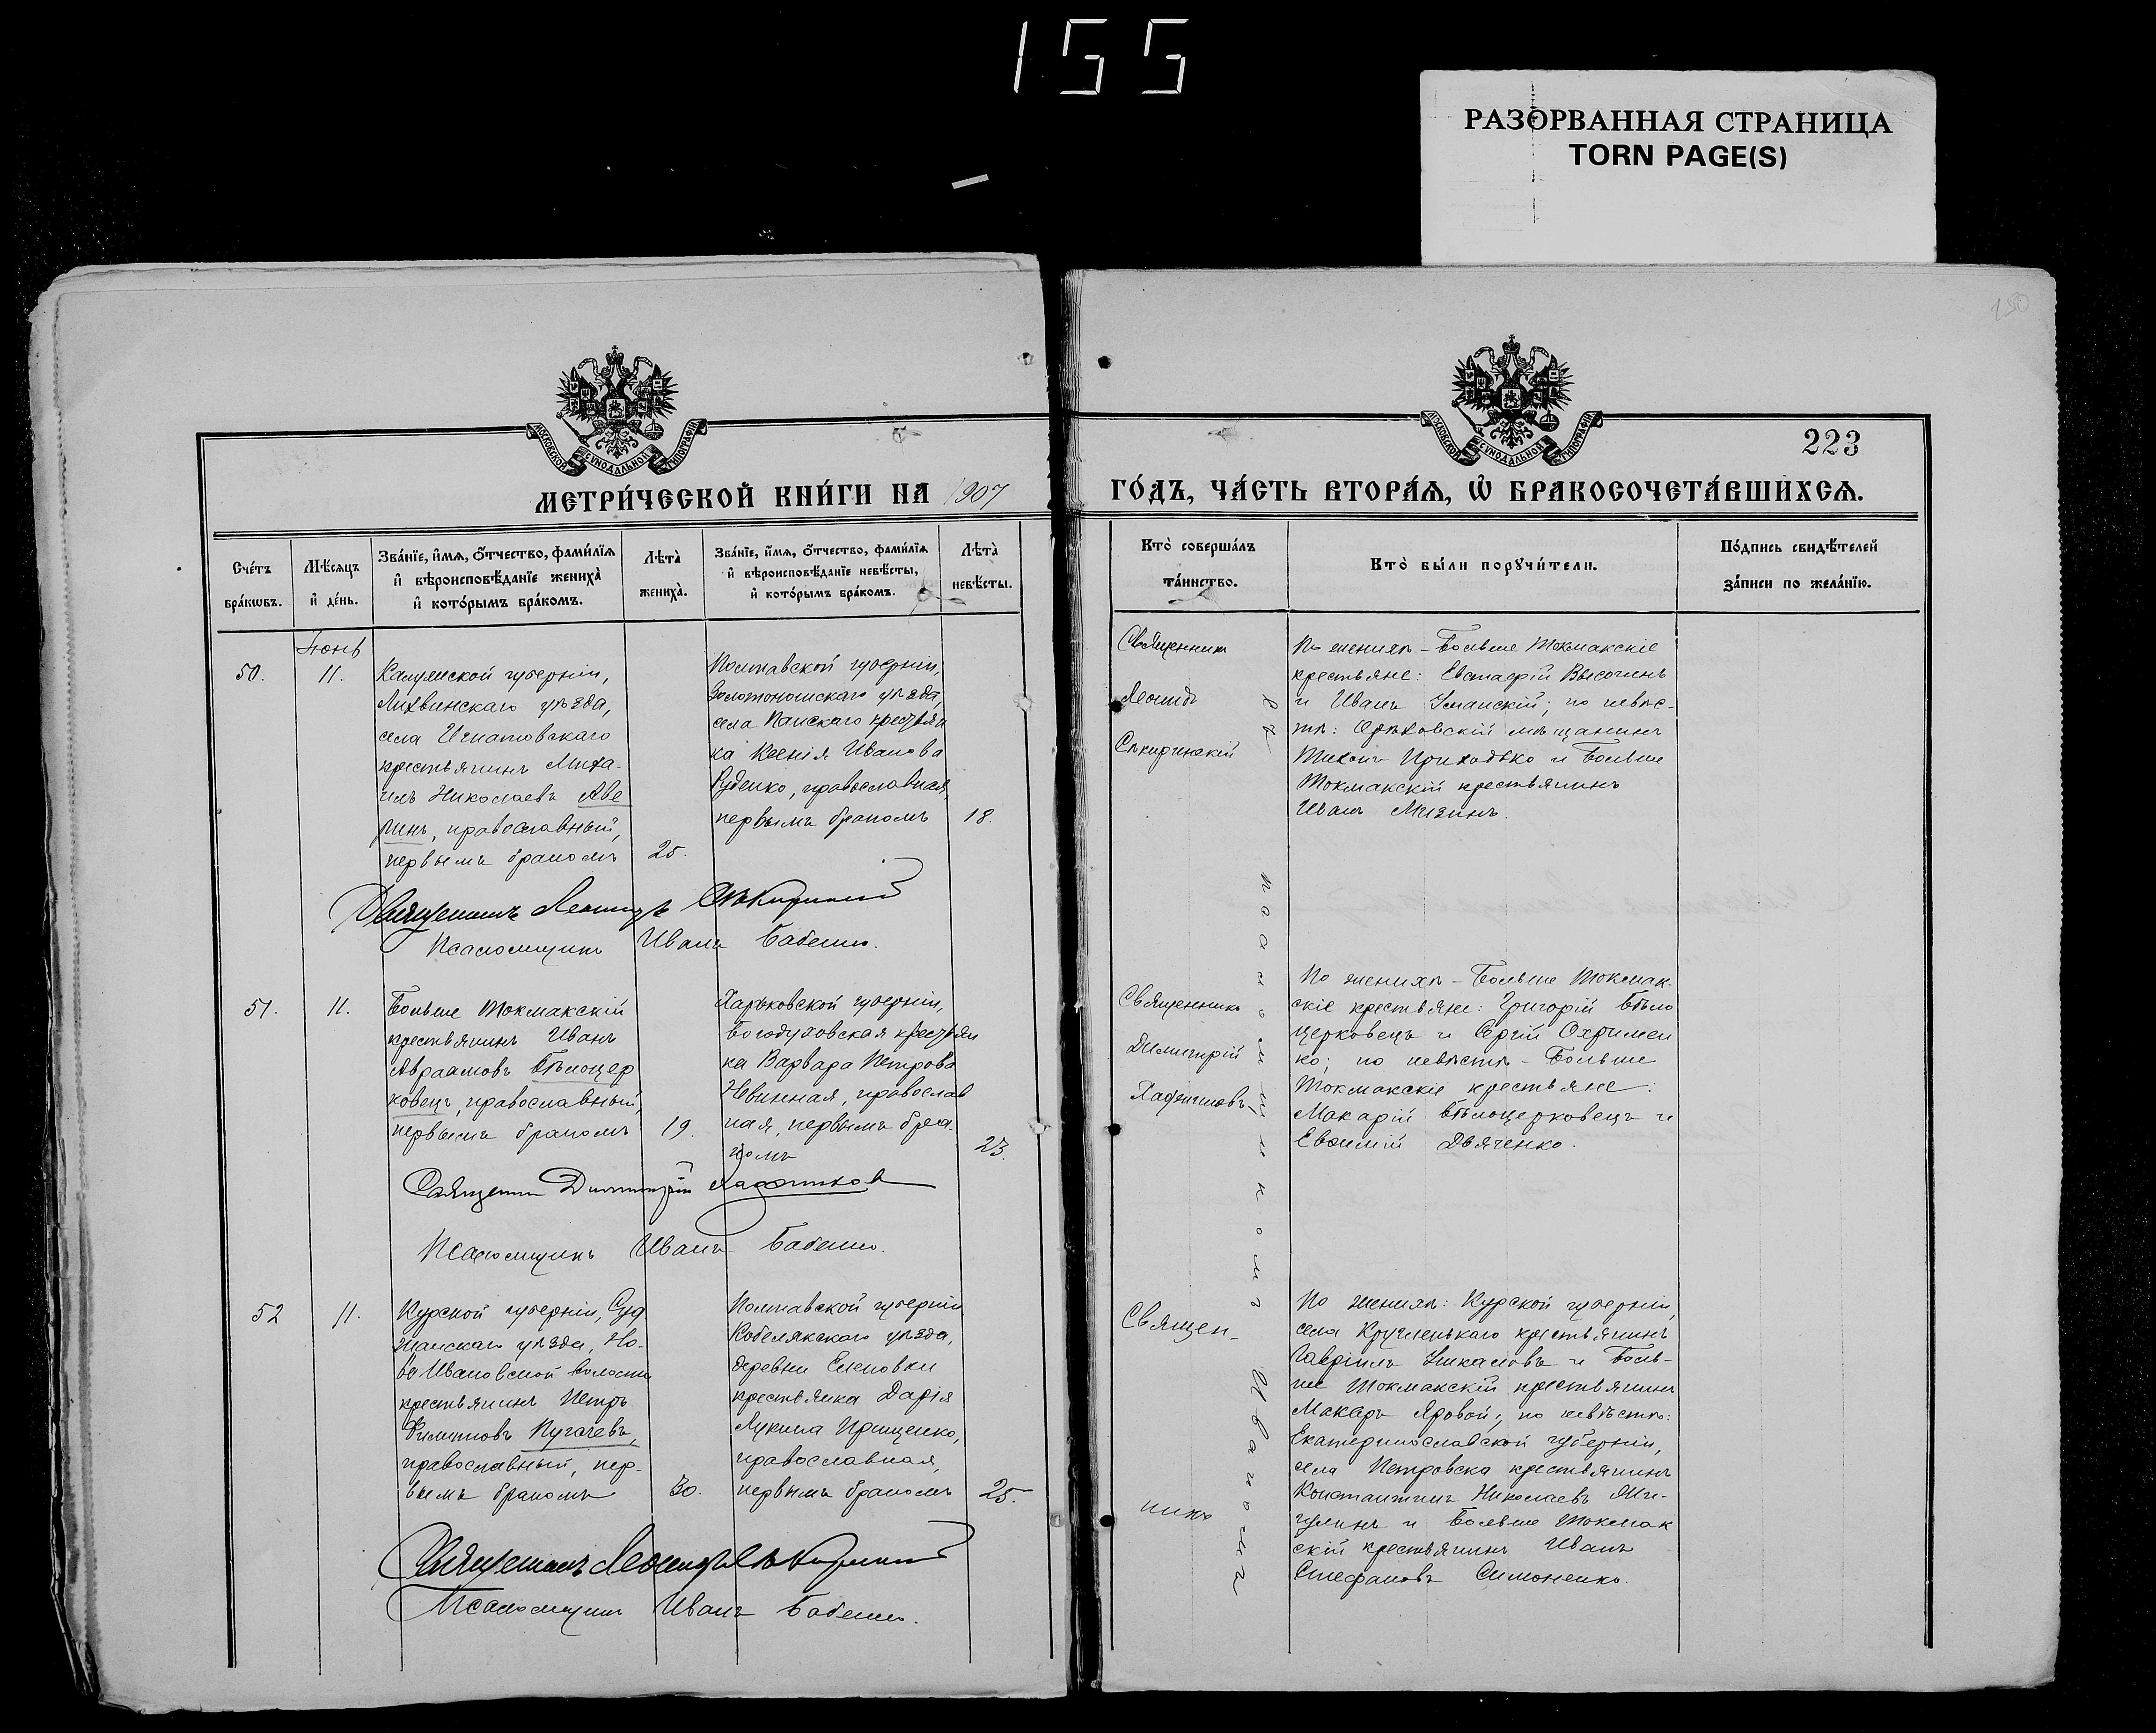 155
РАЗОРВАННАЯ СТРАНИЦА
TORN PAGE(S)
150
МОСКОВСКОЙ СѴНОДАЛЬНОЙ ТИПОГРАФІИ
МОСКОВСКОЙ СѴНОДАЛЬНОЙ ТИПОГРАФІИ
223
МЕТРИ́ЧЕСКОЙ КНИ́ГИ НА 1907
ГО́ДЪ, ЧА́СТЬ ВТОРА́Ѧ, Ѽ БРАКОСОЧЕТА́ВШИХСѦ.
Сче́тъ бра́кѡвъ.
Мѣ́сяцъ и҆ де́нь.
Зва́нїе, и҆́мѧ, ѻ҆́тчество, фами́лїѧ
и҆ вѣроисповѣ́данїе жениха̀
и҆ кото́рымъ бра́комъ.
Лѣта̀ жениха̀.
Зва́нїе, и҆́мѧ, ѻ҆́тчество, фами́лїѧ
и҆ вѣроисповѣ́данїе невѣ́сты,
и҆ кото́рымъ бра́комъ.
Лѣта̀ невѣ́сты.
Кто̀ соверша́лъ та́инство.
Кто̀ бы́ли порꙋчи́тели.
По́дпись свидѣ́телей за́писи по жела́нїю.
Іюнь
50. 11.
Калужской губерніи,
Лихвинскаго уѣзда,
села Игнатовскаго
крестьянинъ Миха-
илъ Николаевъ Аве
ринъ, православный,
первымъ бракомъ 25.
Полтавской губерніи,
Золотоношскаго уѣзда,
села Панскаго крестьян
ка Ксенія Иванова
Руденко, православная,
первымъ бракомъ 18.
Священникъ
Леонидъ
Сѣкиринскій
По женихѣ – Больше Токмакскіе
крестьяне: Евстафій Высочинъ
и Иванъ Уманскій; по невѣс-
тѣ: Орѣховскій мѣщанинъ
Тихонъ Приходько и Больше
Токмакскій крестьянинъ
Иванъ Мизинъ.
Священникъ Леонидъ Сѣкиринскій
Псаломщикъ Иванъ Бабенко.
51. 11.
Больше Токмакскій
крестьянинъ Иванъ
Авраамовъ Бѣлоцер
ковецъ, православный,
первымъ бракомъ 19.
Харьковской губерніи,
Богодуховская крестьян
ка Варвара Петрова
Невинная, православ
ная, первымъ бра-
комъ 23.
Священникъ
Димитрій
По женихѣ – Больше Токмак-
скіе крестьяне: Григорій Бѣло
церковецъ и Сергій Охримен
ко; по невѣстѣ – Больше
Токмакскіе крестьяне:
Макарій Бѣлоцерковецъ и
Евѳимій Дьяченко.
Священникъ Димитрій
Псаломщикъ Иванъ Бабенко.
52 11.
Курской губерніи, Суд
жанскаго уѣзда, Но-
во Ивановской волости
крестьянинъ Петръ
Филиповъ Пугачевъ,
православный, пер-
вымъ бракомъ 30.
Полтавской губерніи
Кобелякскаго уѣзда,
деревни Еленовки
крестьянка Дарія
Лукина Прищенко,
православная,
первымъ бракомъ 25.
Священ-
никъ
По женихѣ: Курской губерніи,
села Кругленькаго крестьянинъ
Гавріилъ Ушкаловъ и Боль-
ше Токмакскій крестьянинъ
Макаръ Яровой; по невѣстѣ:
Екатеринославской губерніи,
села Петровска крестьянинъ
Константинъ Николаевъ Жи-
гулинъ и Больше Токмак
скій крестьянинъ Иванъ
Стефановъ Симоненко.
Священникъ Леонидъ Сѣкиринскій
Псаломщикъ Иванъ Бабенко.
псаломщикомъ Иваномъ